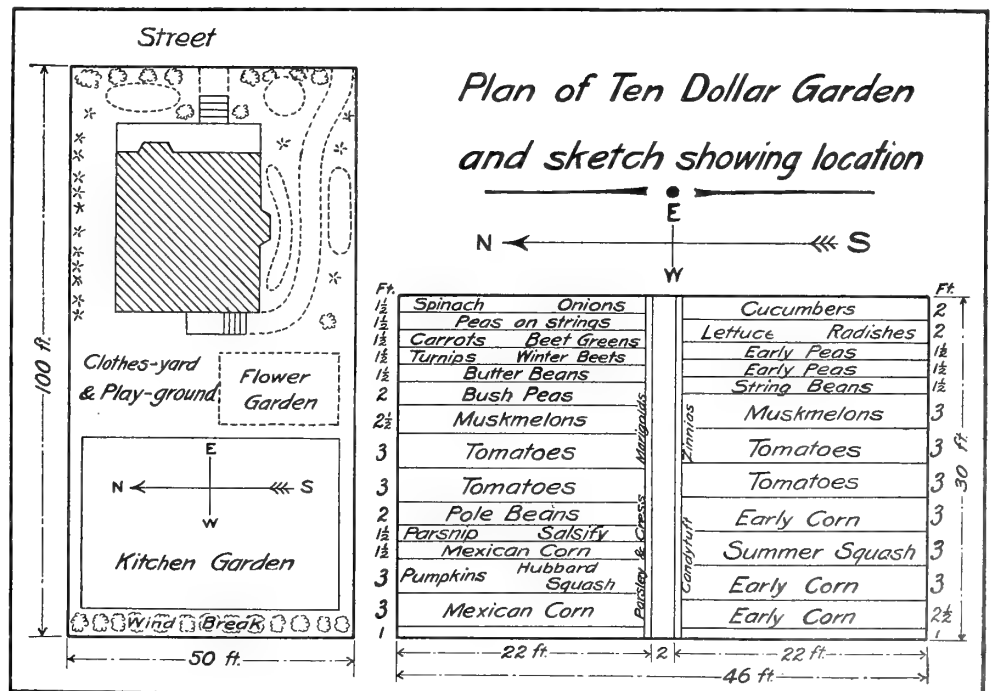 Street
Plan of Ten Dollar Garden
and sketch showing location
E
N S
W
100 ft.
Clothes-yard
& Play-ground
Flower
Garden
E
N S
W
Kitchen Garden
Wind Break
50 ft.
Ft.
1½ Spinach Onions
1½ Peas on strings
1½ Carrots Beet Greens
1½ Turnips Winter Beets
1½ Butter Beans
2 Bush Peas
2½ Muskmelons
3 Tomatoes
3 Tomatoes
2 Pole Beans
1½ Parsnip Salsify
1½ Mexican Corn
3 Pumpkins Hubbard
Squash
3 Mexican Corn
1
Marigolds
Parsley & Cress
Zinnias
Candytuft
Ft.
Cucumbers 2
Lettuce Radishes 2
Early Peas 1½
Early Peas 1½
String Beans 1½
Muskmelons 3
Tomatoes 3
Tomatoes 3
Early Corn 3
Summer Squash 3
Early Corn 3
Early Corn 2½
1
30 ft.
22 ft. 2 22 ft.
46 ft.